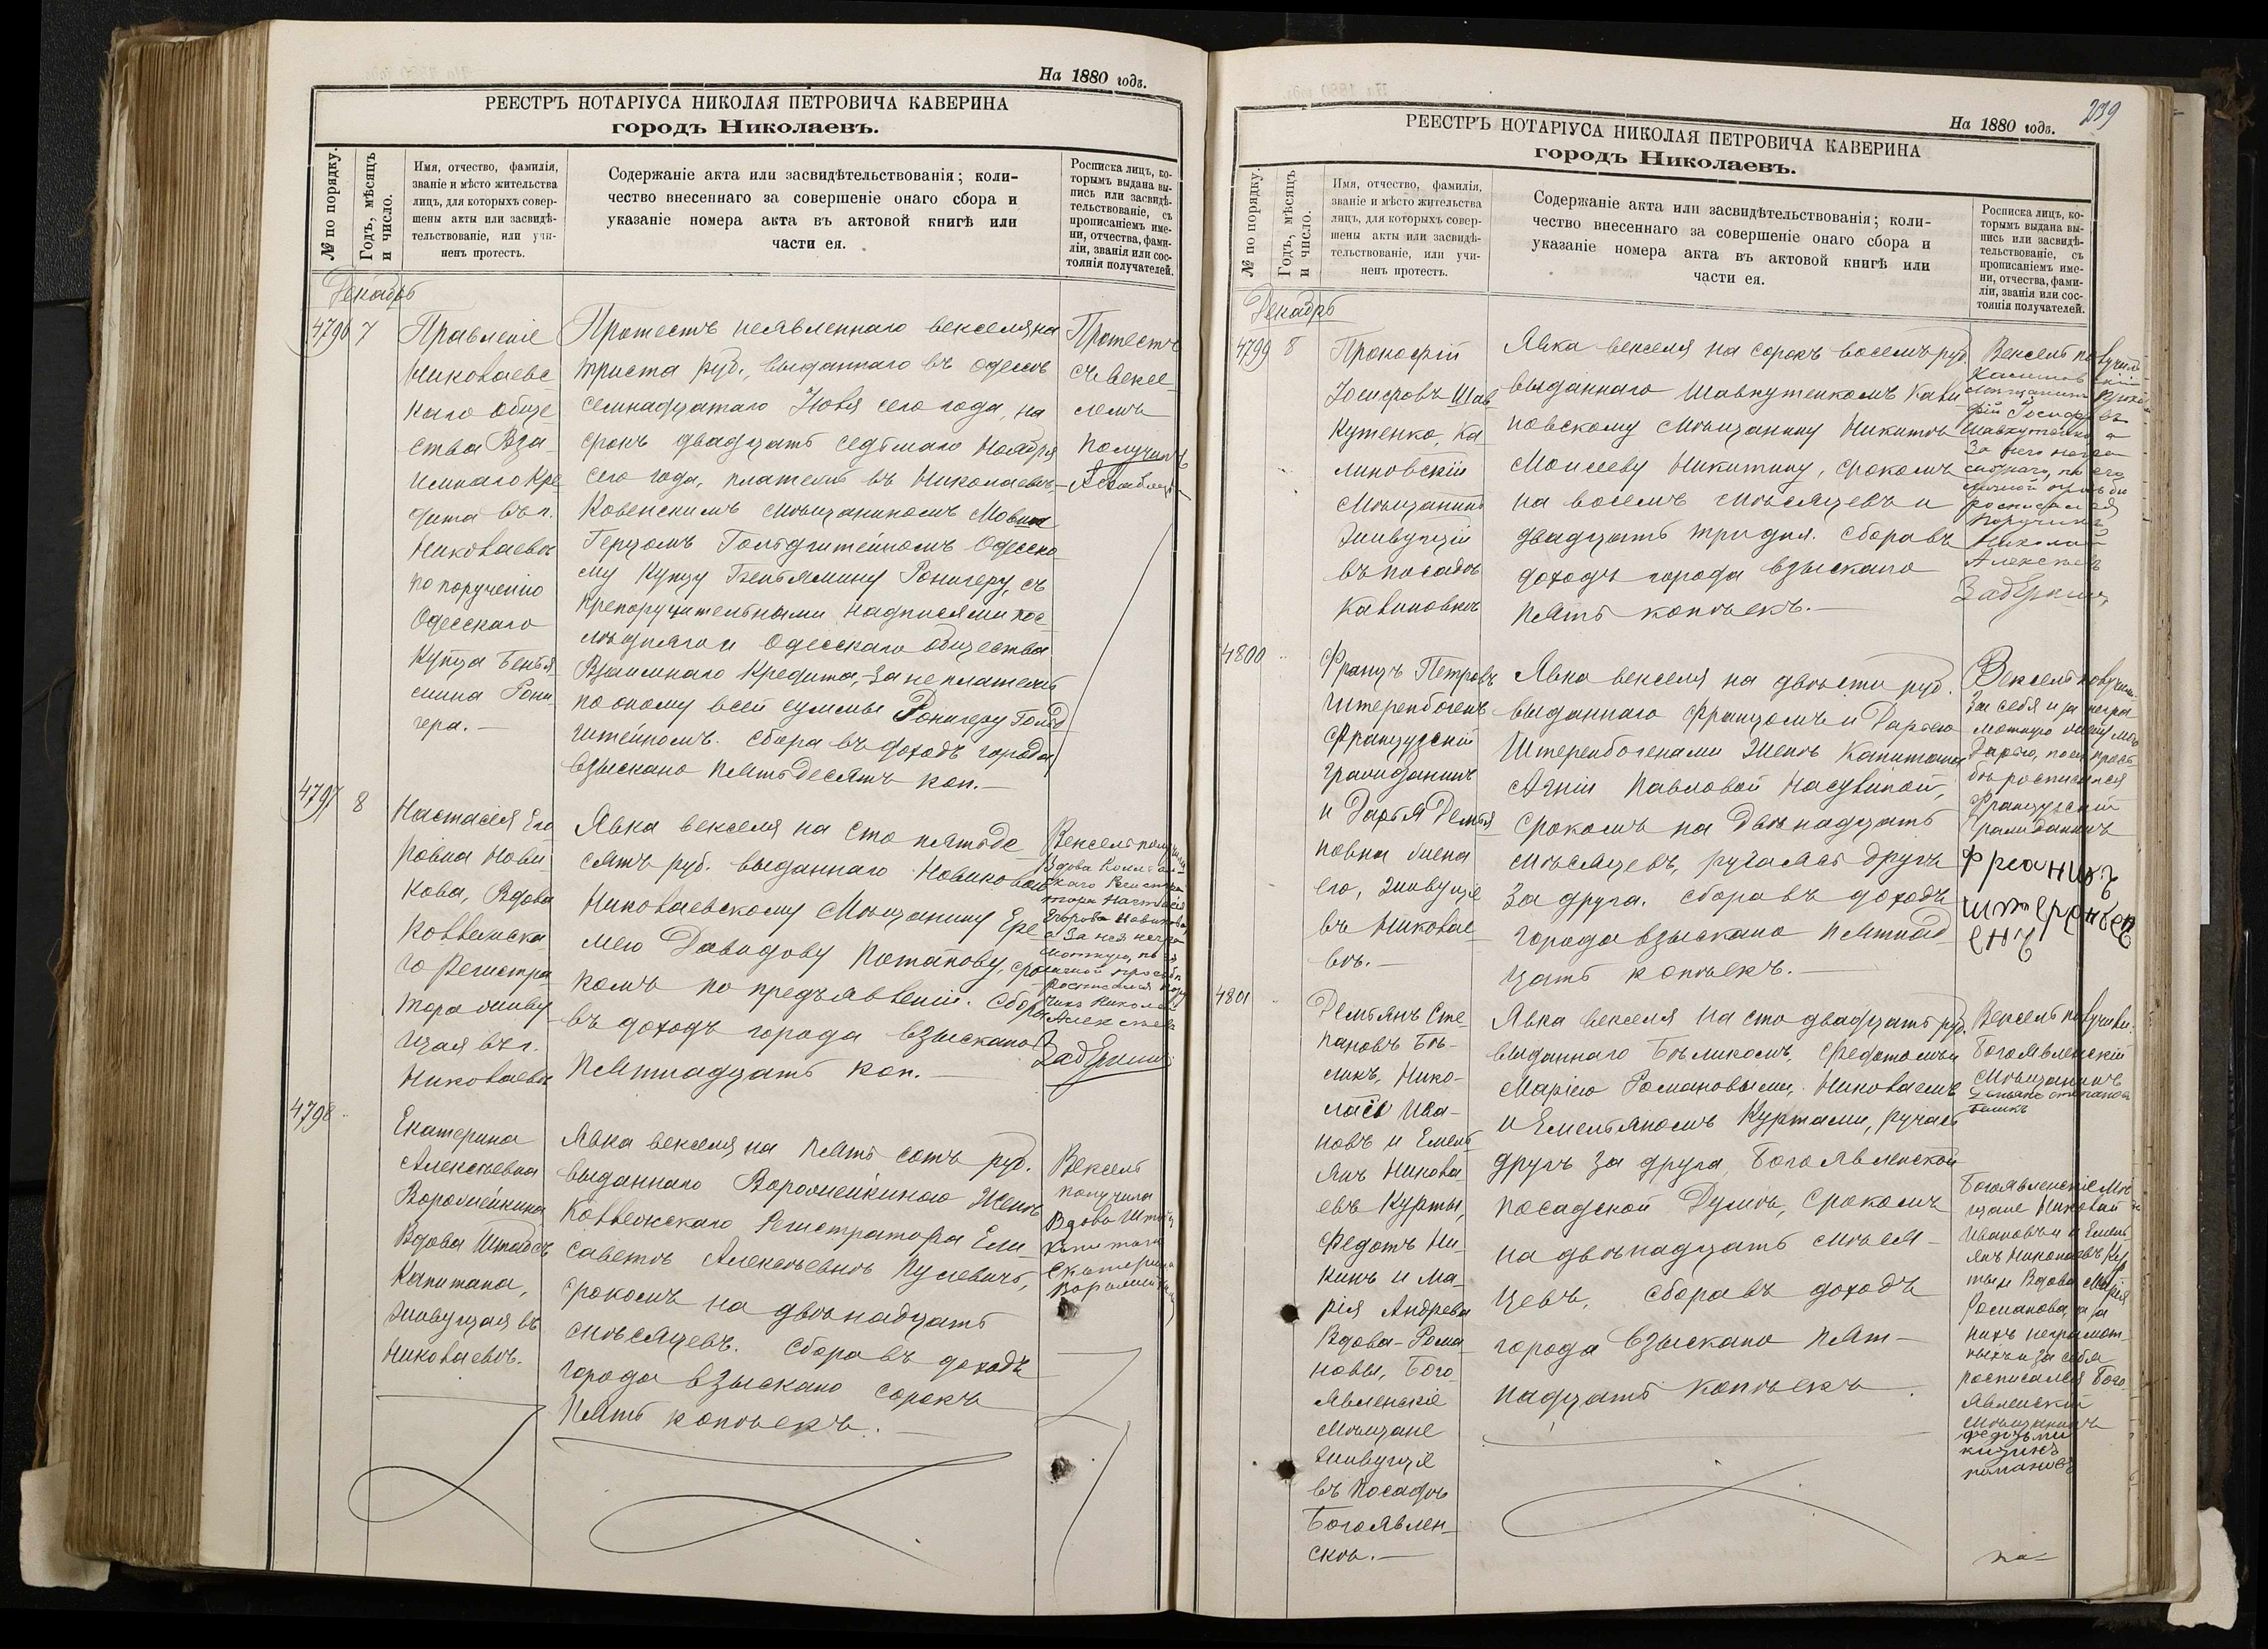 На 1880 годъ.
РЕЕСТРЪ НОТАРІУСА НИКОЛАЯ ПЕТРОВИЧА КАВЕРИНА
городъ Николаевъ.
№ по порядку.
Годъ, мѣсяцъ
и число.
Имя, отчество, фамилія,
званіе и мѣсто жительства
лицъ, для которыхъ совер-
шены акты или засвидѣ-
тельствованіе, или учи-
ненъ протестъ.
Содержаніе акта или засвидѣтельствованія; коли-
чество внесеннаго за совершеніе онаго сбора и
указаніе номера акта въ актовой книгѣ или
части ея.
Росписка лицъ, ко-
торымъ выдана вы-
пись или засвидѣ-
тельствованіе, съ
прописаніемъ име-
ни, отчества, фами-
ліи, званія или сос-
тоянія получателей.
Декабрь
4796 7
Правленіе
Николаевс
каго обще
ства Вза
имнаго Кре
дита въ г.
Николаевѣ
по порученію
Одесскаго
Купца Бенья
мина Рони
гера.—
Протестъ неявленнаго векселя на
триста руб., выданнаго въ Одессѣ
семнадцатаго Іюля сего года, на
срокъ двадцать седьмаго Ноября
сего года, платежъ въ Николаевѣ,—
Ковенскимъ мѣщаниномъ
Герцомъ Гольдштейномъ Одесско
му Купцу Беньямину Ронигеру, съ
препоручительными надписями пос
лѣдняго и Одесскаго общества
Взаимнаго Кредита,—за неплатежъ
по оному всей суммы Ронигеру Гольд
штейномъ. Сбора въ доходъ города
взыскано пятьдесятъ коп.—
Протестъ
съ вексе
лемъ
получилъ
4797 8
Настасія Его
ровна Нови
кова, Вдова
Коллежска
го Регистра
тора живу
щая въ г.
Николаевѣ
Явка векселя на сто пятьде
сятъ руб. выданнаго Новиковою
Николаевскому Мѣщанину Ере
мею Давидову Потапову, сро
комъ по предъявленіи. Сбора
въ доходъ города взыскано
пятнадцать коп.—
Вексель получила
Вдова Коллеж
скаго Регистра
тора Настасія
Егорова Новикова
а за нея негра
мотную, по ея
личной просьбѣ
росписался Пору
чикъ Николай
Алексѣевъ
4798 ..
Екатерина
Алексѣевна
Воромейкина
Вдова Штабсъ
Капитана,
живущая въ
Николаевѣ.
Явка векселя на пять сотъ руб.
выданнаго Воромейкиною Женѣ
Коллежскаго Регистратора Ели
саветѣ Алексѣевнѣ Пулевичъ,
срокомъ на двѣнадцать
мѣсяцевъ. Сбора въ доходъ
города взыскано сорокъ
пять копѣекъ.—
Вексель
получила
Вдова Штабсъ
Капитана
Екатерина
239
На 1880 годъ.
РЕЕСТРЪ НОТАРІУСА НИКОЛАЯ ПЕТРОВИЧА КАВЕРИНА
городъ Николаевъ.
№ по порядку.
Годъ, мѣсяцъ
и число.
Имя, отчество, фамилія,
званіе и мѣсто жительства
лицъ, для которыхъ совер-
шены акты или засвидѣ-
тельствованіе, или учи-
ненъ протестъ.
Содержаніе акта или засвидѣтельствованія; коли-
чество внесеннаго за совершеніе онаго сбора и
указаніе номера акта въ актовой книгѣ или
части ея.
Росписка лицъ, ко-
торымъ выдана вы-
пись или засвидѣ-
тельствованіе, съ
прописаніемъ име-
ни, отчества, фами-
ліи, званія или сос-
тоянія получателей.
Декабрь
4799 8
Прокофій
Іосифовъ Шав
кутенко, Ка
линовскій
Мѣщанинъ
живущій
въ посадѣ
Калиновкѣ
Явка векселя на сорокъ восемь руб.
выданнаго Шавкутенкомъ Кали
новскому мѣщанину Никитѣ
Моисееву Никитину, срокомъ
на восемь мѣсяцевъ и
двадцать три дня. Сбора въ
доходъ города взыскано
пять копѣекъ.—
Вексель получилъ
Калиновскій
Мѣщанинъ Проко
фій Іосифовъ
Шавкутенко, а
за него негра
мотнаго, по его
личной просьбѣ
росписался
Поручикъ
Николай
Алексѣевъ
4800 ..
Францъ Петровъ
Штеренбогенъ
Французскій
Гражданинъ
и Дарья Демья
новна жена
его, живущіе
въ Николае
вѣ.—
Явка векселя на двѣсти руб.
выданнаго Францомъ и Дарьею
Штеренбогенами Женѣ Капитана
Агніи Павловой Насѣткиной,
срокомъ на двѣнадцать
мѣсяцевъ, ручаясь другъ
за друга. Сбора въ доходъ
города взыскано пятнад
цать копѣекъ.—
Вексель получилъ
за себя и за негра
мотную жену мою
Дарью, по ея прось
бѣ росписался
Французскій
Гражданинъ
4801 ..
Демьянъ Сте-
пановъ Бѣ-
ликъ, Нико-
лай Ива-
новъ и Емель
янъ Никола
евъ Курты,
Федотъ Ни-
кинъ и Ма-
рія Андреева
Вдова-Рома
новы, Бого
явленскіе
Мѣщане
живущіе
въ Посадѣ
Богоявлен-
скѣ.—
Явка векселя на сто двадцать руб.
выданнаго Бѣликомъ, Федотомъ и
Маріею Романовыми, Николаемъ
и Емельяномъ Куртами, ручаясь
другъ за друга, Богоявленской
посадской Думѣ, срокомъ
на двѣнадцать мѣся-
цевъ. Сбора въ доходъ
города взыскано пят-
надцать копѣекъ.
Вексель получили:
Богоявленскій
Мѣщанинъ
Богоявленскіе Мѣ
щане Николай
Ивановъ и Емель
янъ Николаевъ Кур
ты и Вдова Марія
Романова, а за
нихъ неграмот
ныхъ и за себя
росписался Бого
явленскій
Мѣщанинъ